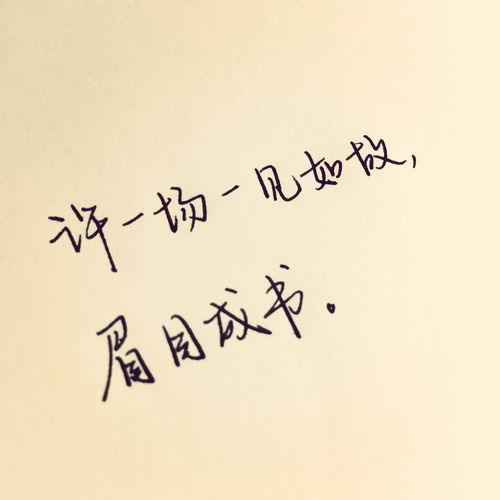 许一场一见如故,
眉目成书。